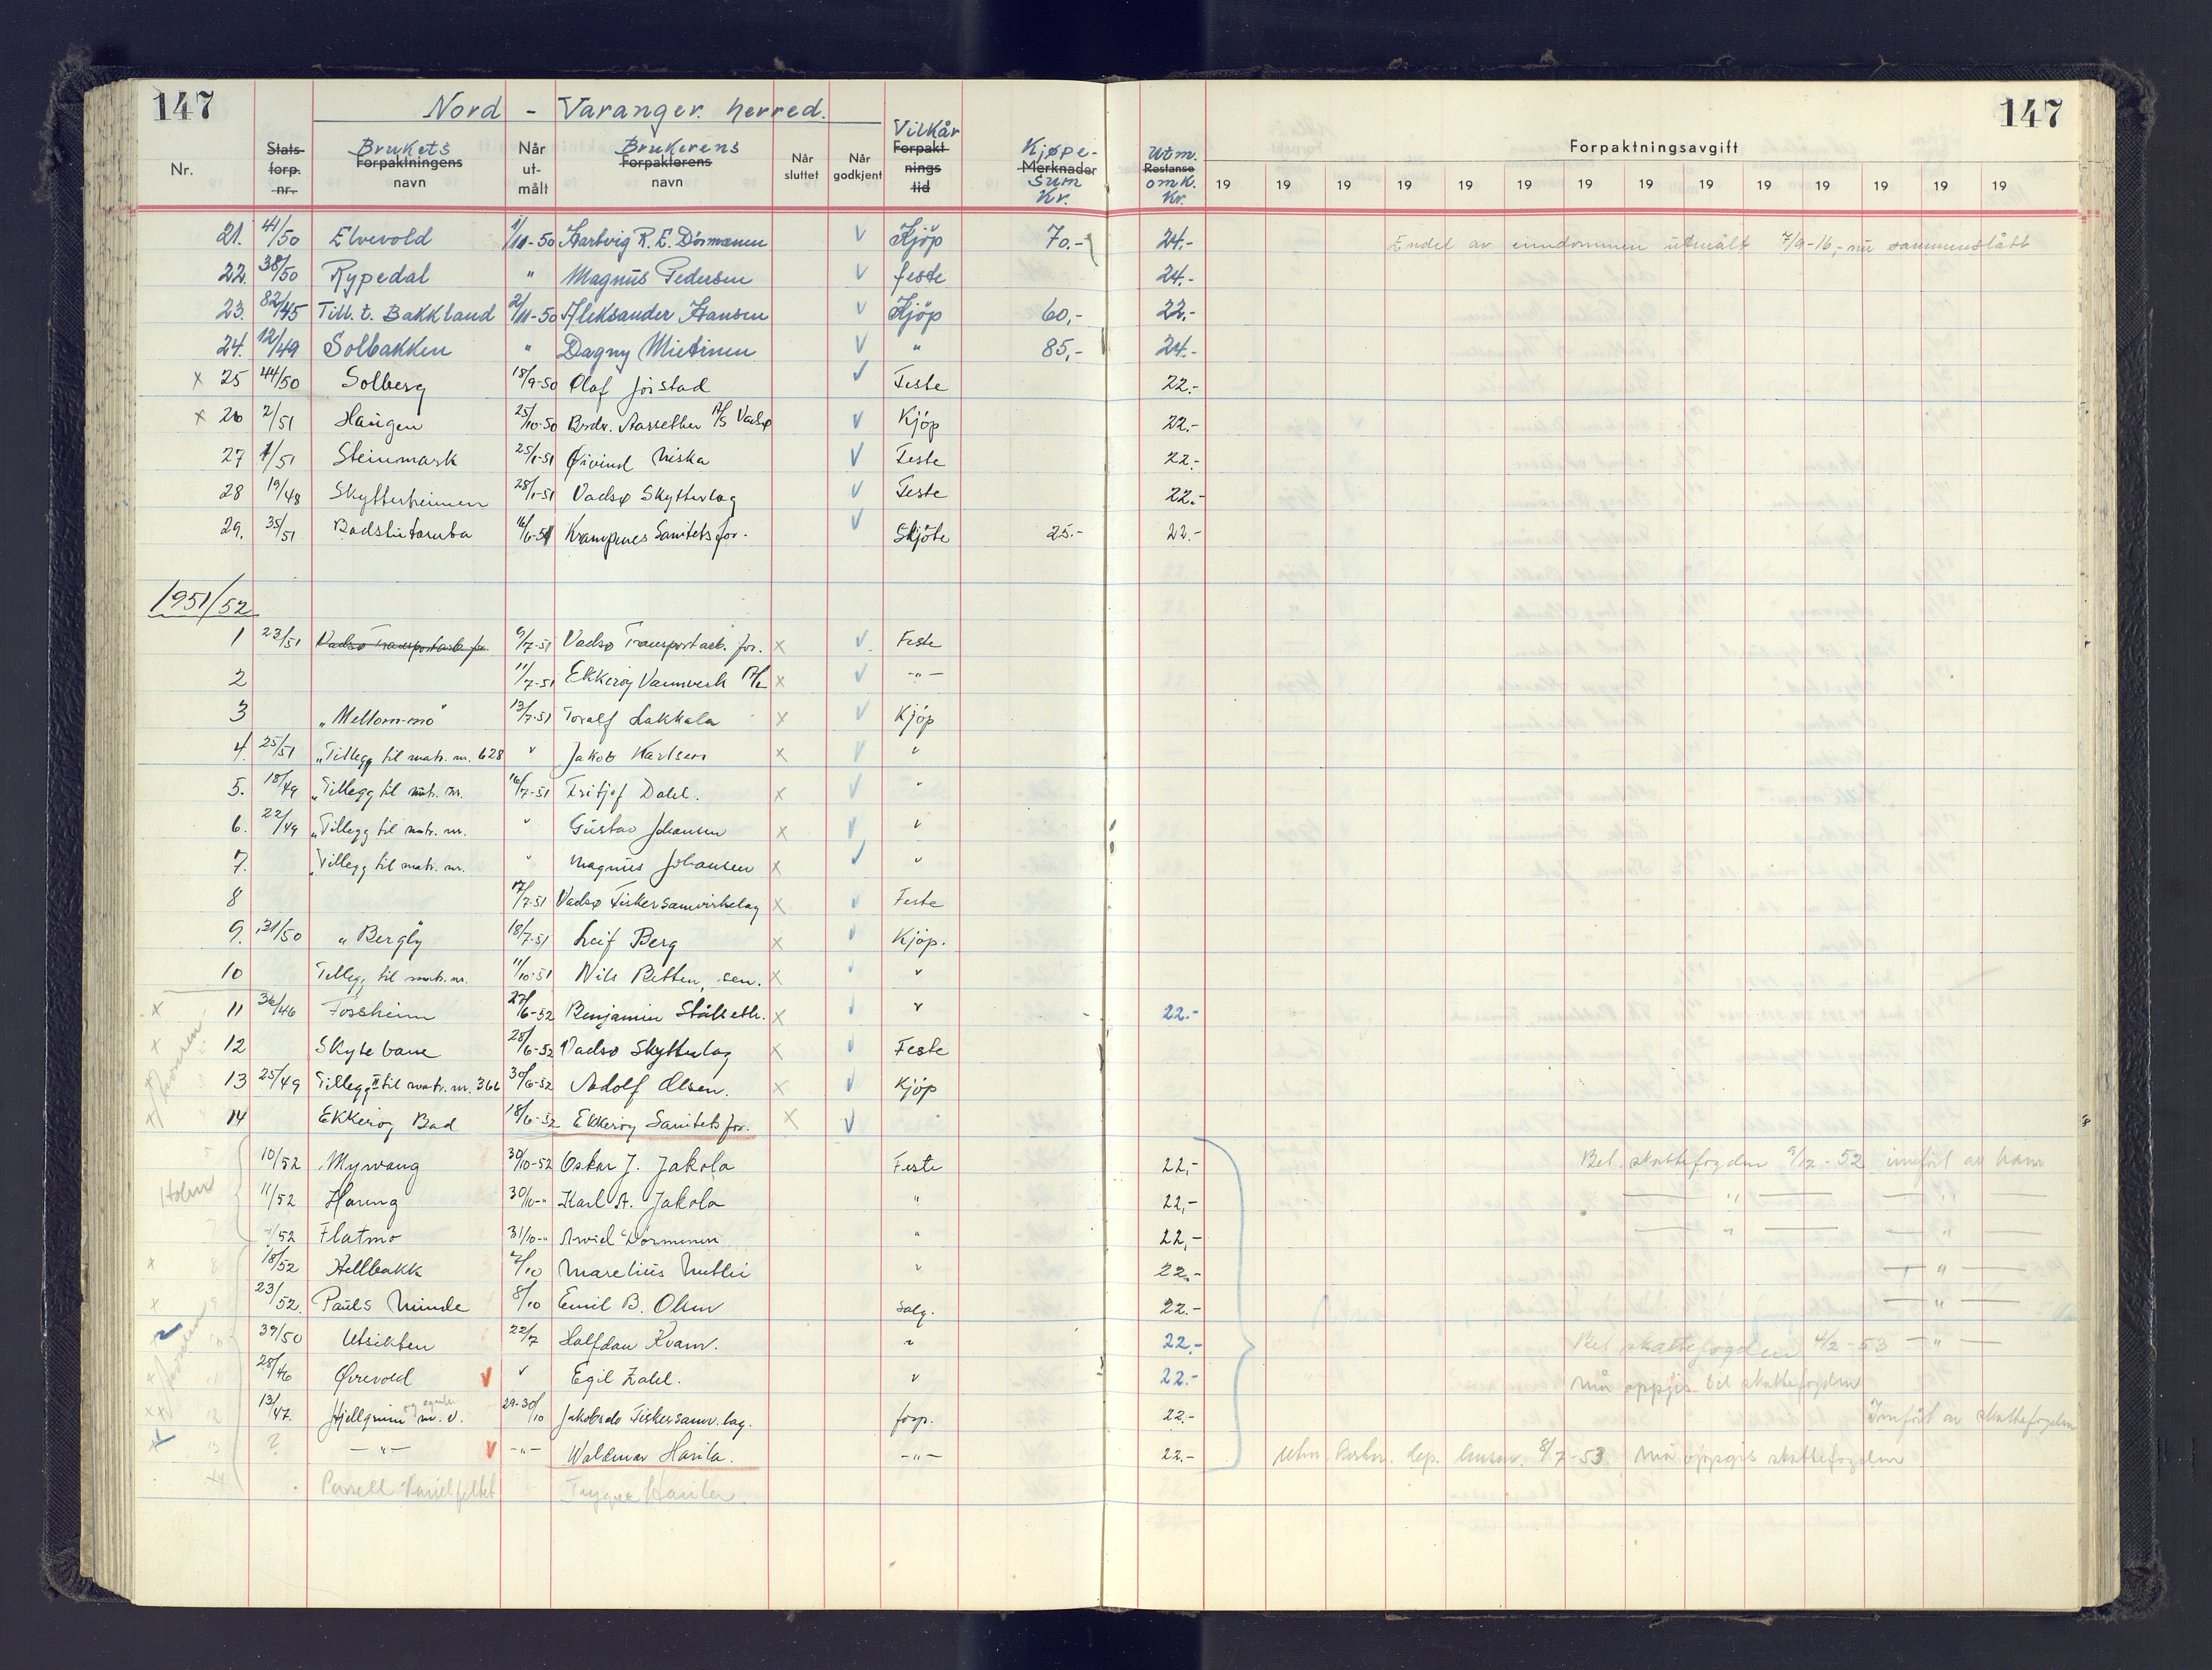 147 Nord - Varanger herred. 147
Nr. Stats- forp. nr. Brukets Forpaktningens navn Når ut- målt Brukerens Forpakterens navn Når sluttet Når godkjent Vilkår Forpakt- nings tid Kjøpe- Merknader sum Kr. Utm. Restanse omk. Kr. Forpaktningsavgift
19 19 19 19 19 19 19 19 19 19 19 19 19 19
21. 41/50 Elvevold 1/11-50 Hartvig R. E. Dörmænen v Kjöp 70.- 24.- Endel av eiendommen utmålt 7/9-16,- nu sammenslått
22. 38/50 Rypedal " Magnus Pedersen v feste 24.-
23. 82/45 Till. t. Bakkland 2/11-50 Aleksander Hansen v Kjöp 60,- 22.-
24. 12/49 Solbakken " Dagny Mietinen v " 85,- 24.-
x 25 44/50 Solberg 18/9-50 Olaf Jörstad v Feste 22.-
x 26 2/51 Haugen 25/10-50 Brdr. Aarsether A/S Vadsø v Kjöp 22.-
27 1/51 Steinmark 25/1-51 Øivind Niska v Feste 22.-
28 19/48 Skytterheimen 28/1-51 Vadsø Skytterlag v Feste 22.-
29. 35/51 Badstutomta 16/6-51 Krampenes Sanitetsfor. v Skjöte 25.- 22.-
1951/52
1 23/51 Vadsø Transportarb. for. 9/7-51 Vadsø Transportarb. for. x v Feste
2 11/7-51 Ekkeröy Vannverk A/L x v -"-
3 "Mellom-mo" 13/7-51 Toralf Lakkala x v Kjöp
4. 25/51 "Tillegg til matr. nr. 628 " Jakob Karlsen x v "
5. 18/49 "Tillegg til matr. nr. 16/7-51 Fritjof Dahl. x v "
6. 22/49 "Tillegg til matr. nr. " Gustav Johansen x v "
7. "Tillegg til matr. nr. " Magnus Johansen x v "
8 17/7-51 Vadsø Fiskersamvirkelag x v Feste
9. 31/50 "Bergly" 18/7-51 Leif Berg x v Kjöp.
10 Tillegg til matr. nr. 11/10-51 Nils Betten, sen. x v "
x 11 36/46 Fossheim 27/6-52 Benjamin Stålseth. x v " 22.-
x 12 Skytebane 28/6-52 Vadsø Skytterlag x v Feste
13 25/49 Tillegg II til matr. nr. 366 30/6-52 Adolf Olsen. x v Kjöp
14 Ekkeröy Bad 18/6-52 Ekkeröy Sanitetsfor. x v
5 10/52 Myrvang 30/10-52 Oskar J. Jakola Feste 22,- Bet. skattefogden 9/12-52 innfört av ham
Holm 11/52 Haung 30/10-" Karl A. Jakola " 22,- " "
7 /52 Flatmo 31/10-" Arvid Dörmenen " 22,- " "
x 8 18/52 Hellbakk 2/10 Marelius Mutli " 22.- "
x 9 23/52. Pauls Minde 8/10 Emil B. Olsen salg. 22.- "
39/50 Utsikten 22/7 Halfdan Kvam. " 22.- Bet. skattefogden 4/2-53 - " -
x 11 28/46 Øvrevold v " Egil Dahl. " 22.- Må oppgis til skattefogden
xx 12 13/47. Hjellgrunn m. v. 29-30/10 Jakobselv Fiskersamv. lag. forp. 22.- Innfört av skattefogden
13 ? -"- v -"- Waldemar Harila. -"- 22.- dep. 8/7-53 Må oppgis skattefogden
14 Parsell Trygve Harila.